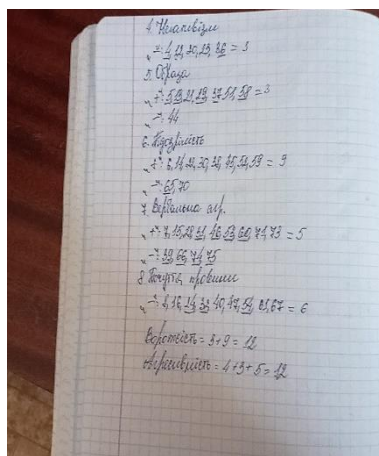 4. Негативізм
"+": 4, 12, 20, 23, 36 = 3
5. Образа
"+": 5, 13, 21, 29, 37, 51, 58 = 3
"-": 44
6. Підозрілість
"+": 6, 14, 22, 30, 38, 45, 52, 59 = 9
"-": 65, 70
7. Вербальна агр.
"+": 7, 15, 28, 31, 46, 53, 60, 71, 73 = 5
"-": 39, 66, 74, 75
8. Почуття провини
"+": 8, 16, 24, 32, 40, 47, 54, 61, 67 = 6
Ворожість = 3 + 9 = 12
Агресивність = 4 + 3 + 5 = 12